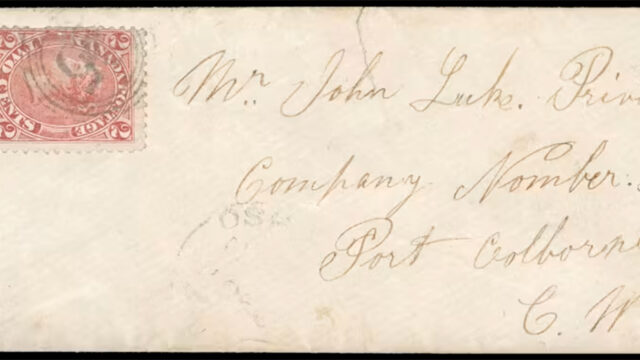 CANADA POSTAGE
TWO CENTS
2 2
5
Mr. John Luke. Priv
Company Nomber.
Port Colborne
C. W